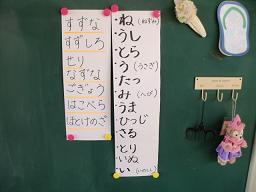 すずな
すずしろ
せり
なずな
ごぎょう
はこべら
ほとけのざ
・ね(ねずみ)
・うし
・とら
・う(うさぎ)
・たつ
・み(へび)
・うま
・ひつじ
・さる
・とり
・いぬ
・い(いのしし)